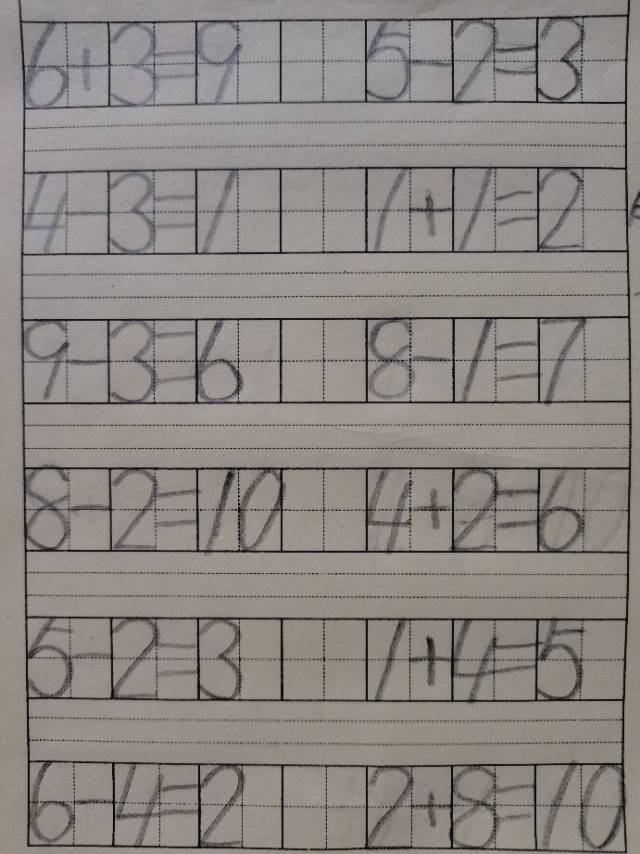 6+3=9 5-2=3
4-3=1 1+1=2
9-3=6 8-1=7
8-2=10 4+2=6
5-2=3 1+4=5
6-4=2 2+8=10